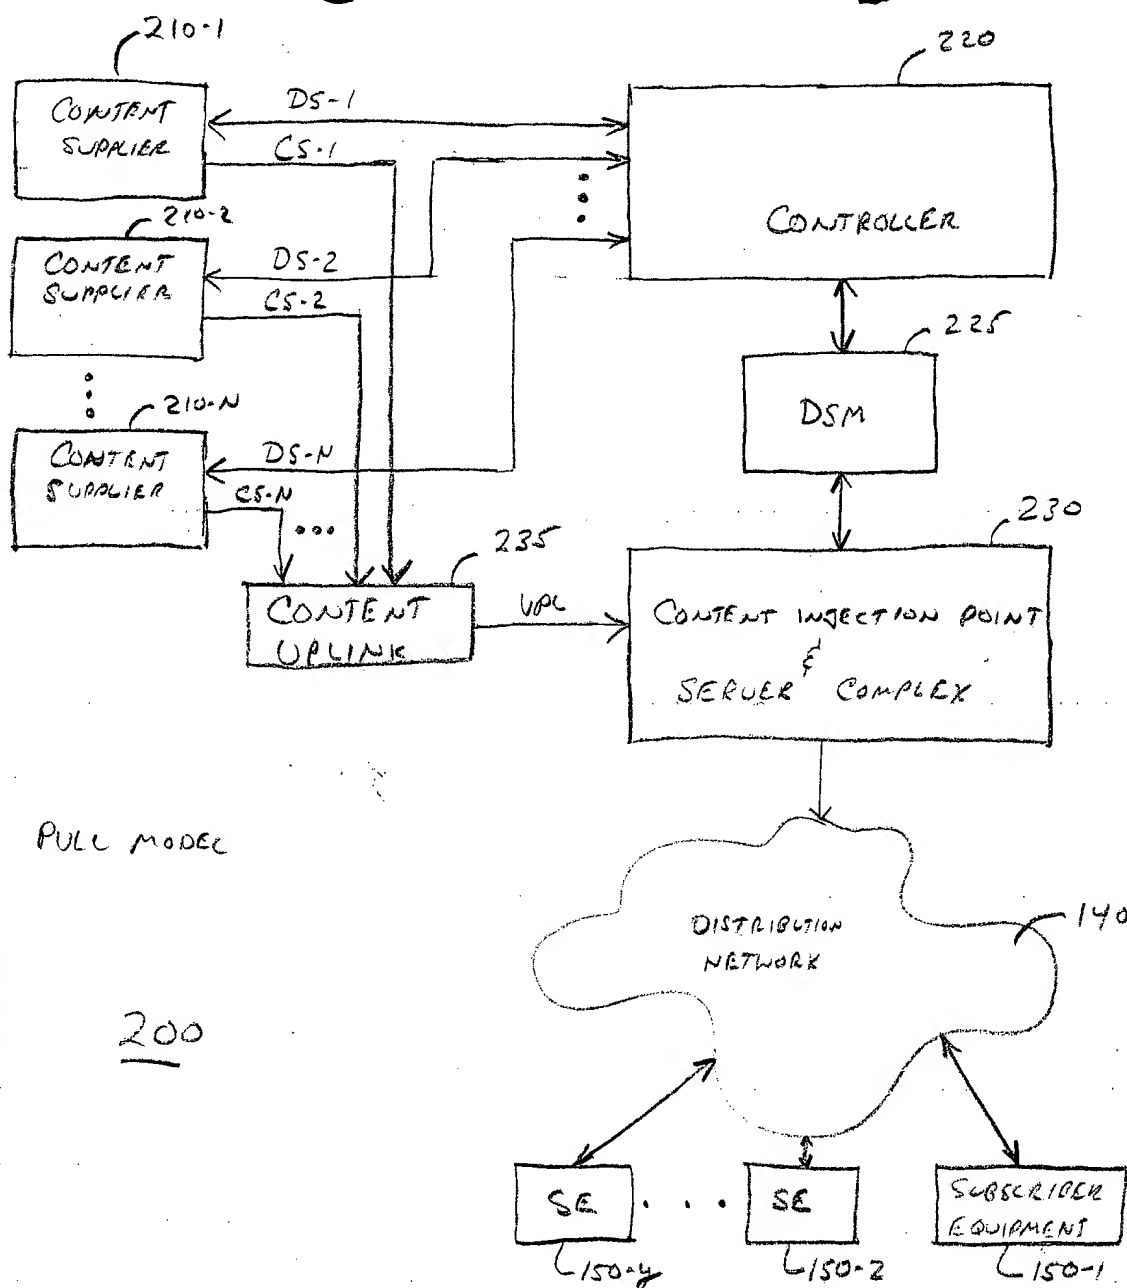 210-1
220
CONTENT
SUPPLIER
DS-1
CS-1
CONTROLLER
210-2
CONTENT
SUPPLIER
DS-2
CS-2
225
DSM
210-N
CONTENT
SUPPLIER
DS-N
CS-N
235
230
CONTENT
UPLINK
UPL
CONTENT INJECTION POINT
&
SERVER COMPLEX
PULL MODEL
DISTRIBUTION
NETWORK
140
200
SE
SE
SUBSCRIBER
EQUIPMENT
150-y
150-2
150-1